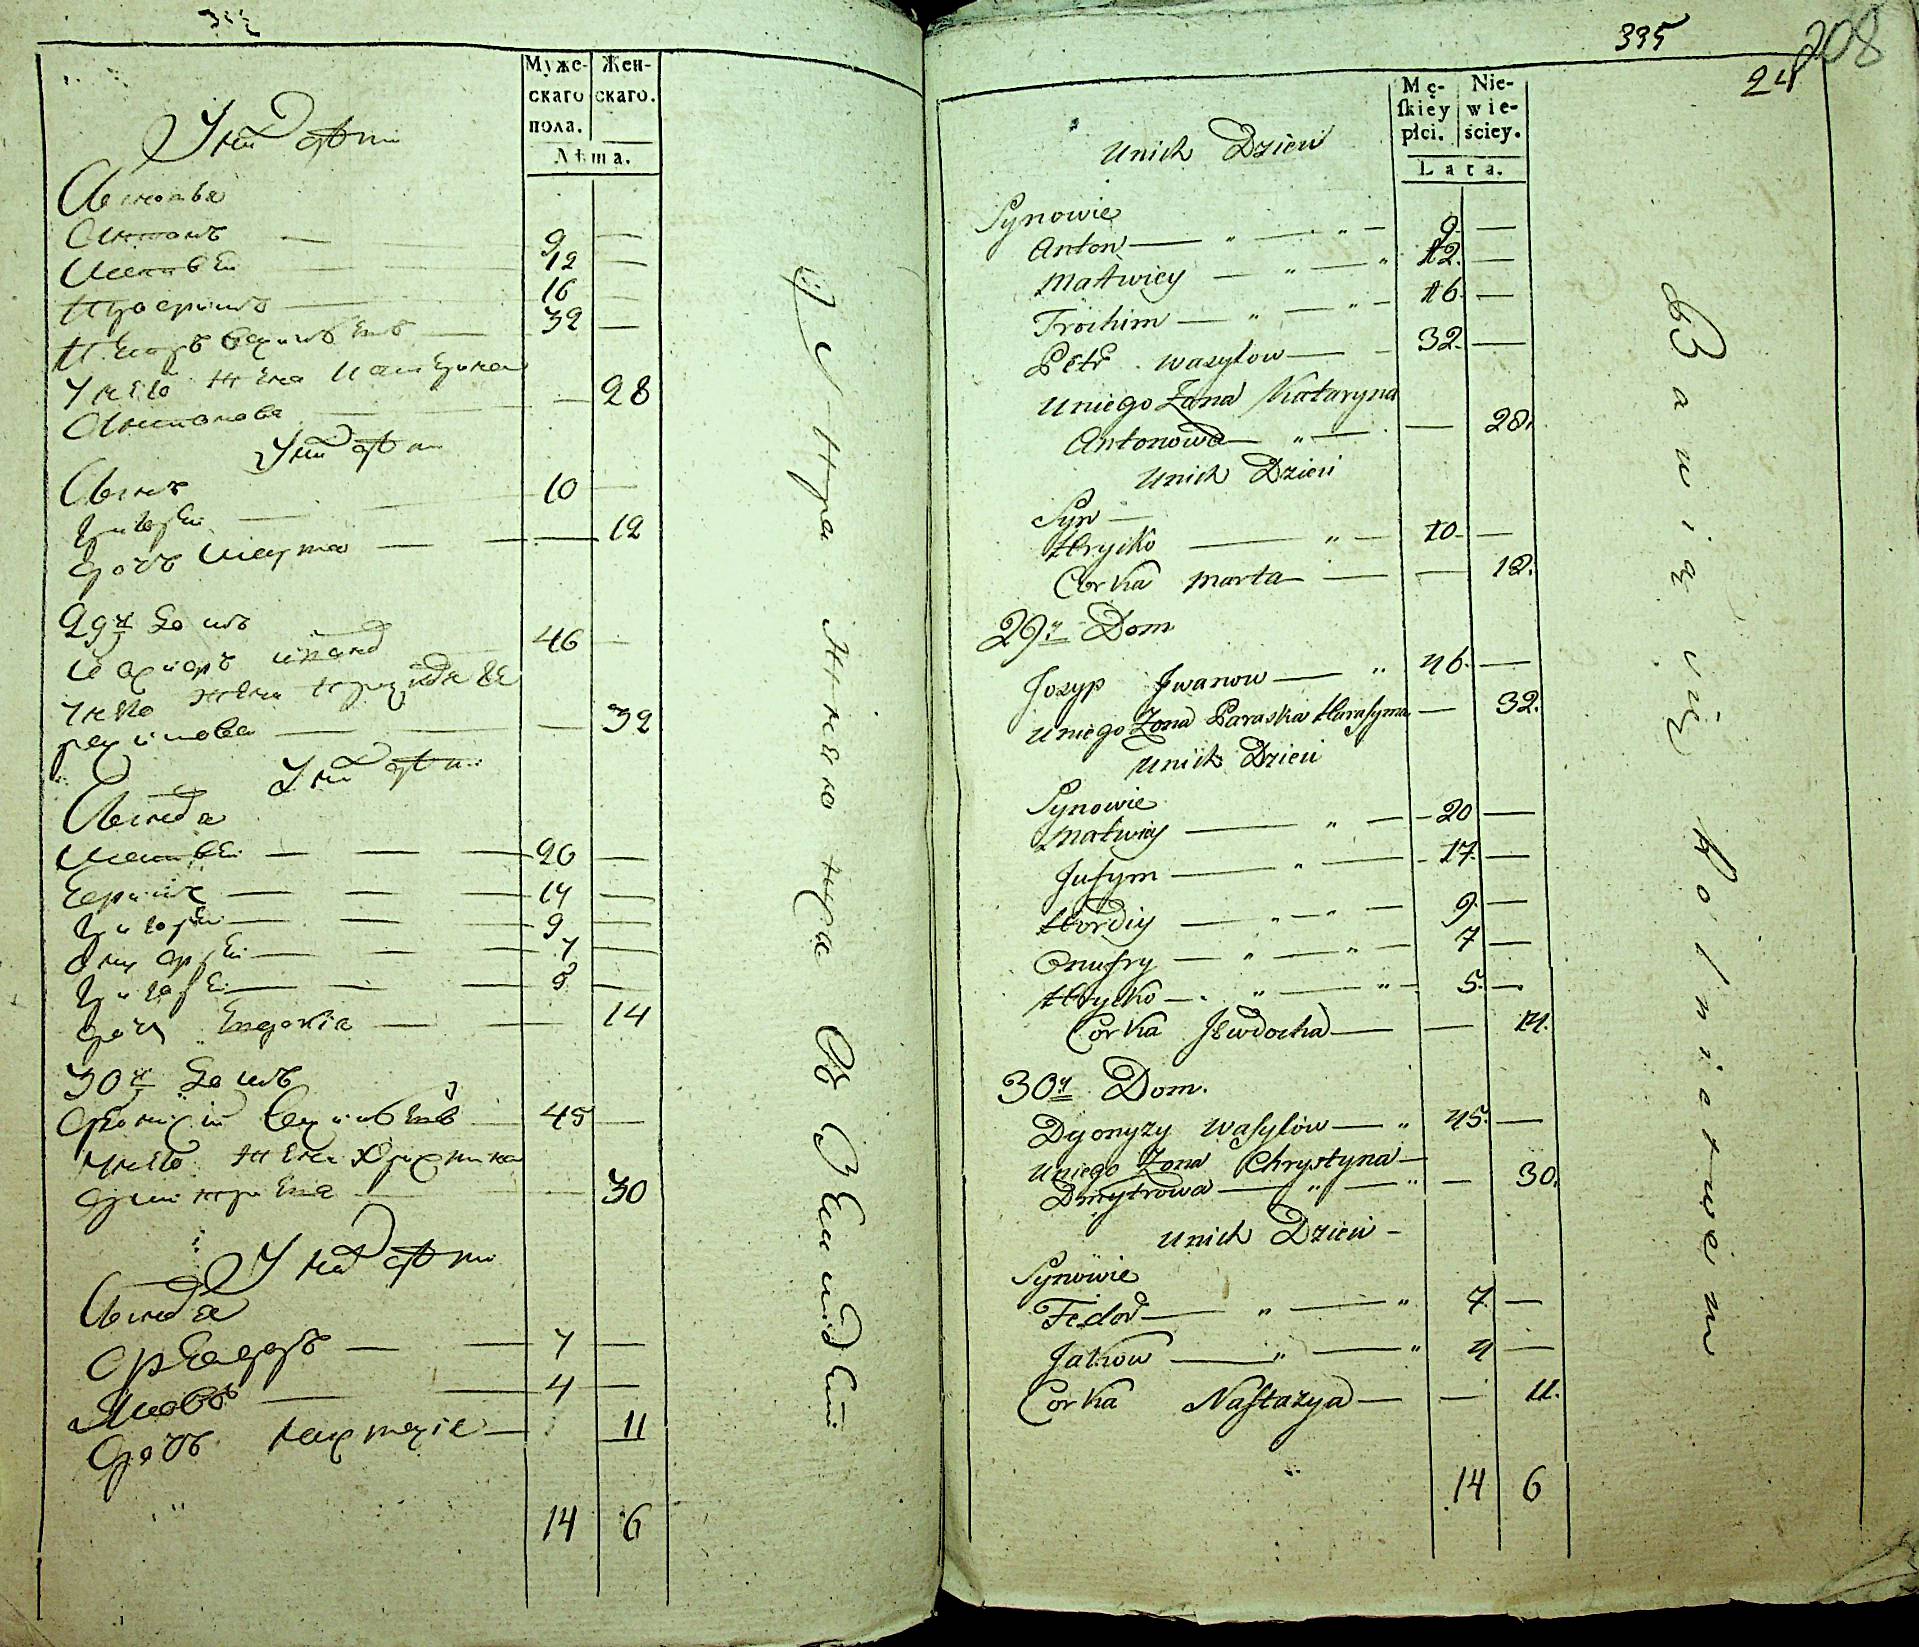 Муже-
скаго
пола.
Жен-
скаго.
Лѣта.
У них дѣти
Сыновья
Антонъ — 9 —
Матвѣй — 12 —
Трофимъ — 16 —
Петръ Василіевъ — 32 —
У него жена Катерина
Антонова — 28
У них дѣти
Сынъ
Григорей — 10 —
Дочь Марта — 12
29й Домъ
Іосифъ Иванов 46 —
У него жена
— 32
У них дѣти
Сыновья
Матвей — 20 —
Ефимъ — 17 —
9 —
Онуфрей — 7 —
Григорей —
Дочь Евдокія — 14
30й Домъ
Діонисій Василіевъ — 45 —
У него жена Христина
Дмитріева — 30
У них дѣти
Сыновья
Феодоръ — 7 —
Яковъ — 4 —
Дочь Настасія — 11
14 6
335
208
24
Mę-
skiey
płci.
Nie-
wie-
ściey.
Lata.
Unich Dzieci
Synowie
Anton — „ — „ — 9. —
Matwiey — „ — „ 12. —
Trochim — „ — „ — 16. —
Petr Wasylow — — 32. —
Uniego Żona Kataryna
Antonowa — „ — — 28.
Unich Dzieci
Syn —
Hryćko — „ — 10. —
Corka Marta — „ — — 12.
29y Dom
Jozyp Jwanow — „ 46. —
Uniego Żona Paraska Harasymo — 32.
Unich Dzieci
Synowie
Matwiey — „ — 20 —
Jufym — „ — 17. —
Hordiy — „ — „ — 9. —
Onufry — „ — „ — 7 —
Hryćko — „ — „ — 5. —
Corka Jewdocha — — 14.
30y Dom.
Dyonyzy Wasylów — „ 45. —
Uniego Żona Chrystyna —
Dmytrowa — „ — „ — 30.
Unich Dzieci —
Synowie
Fedor — „ — „ 7. —
Jakow — „ — „ 4 —
Corka Nastazya — — 11.
14 6
Bawią się Rolnictwem